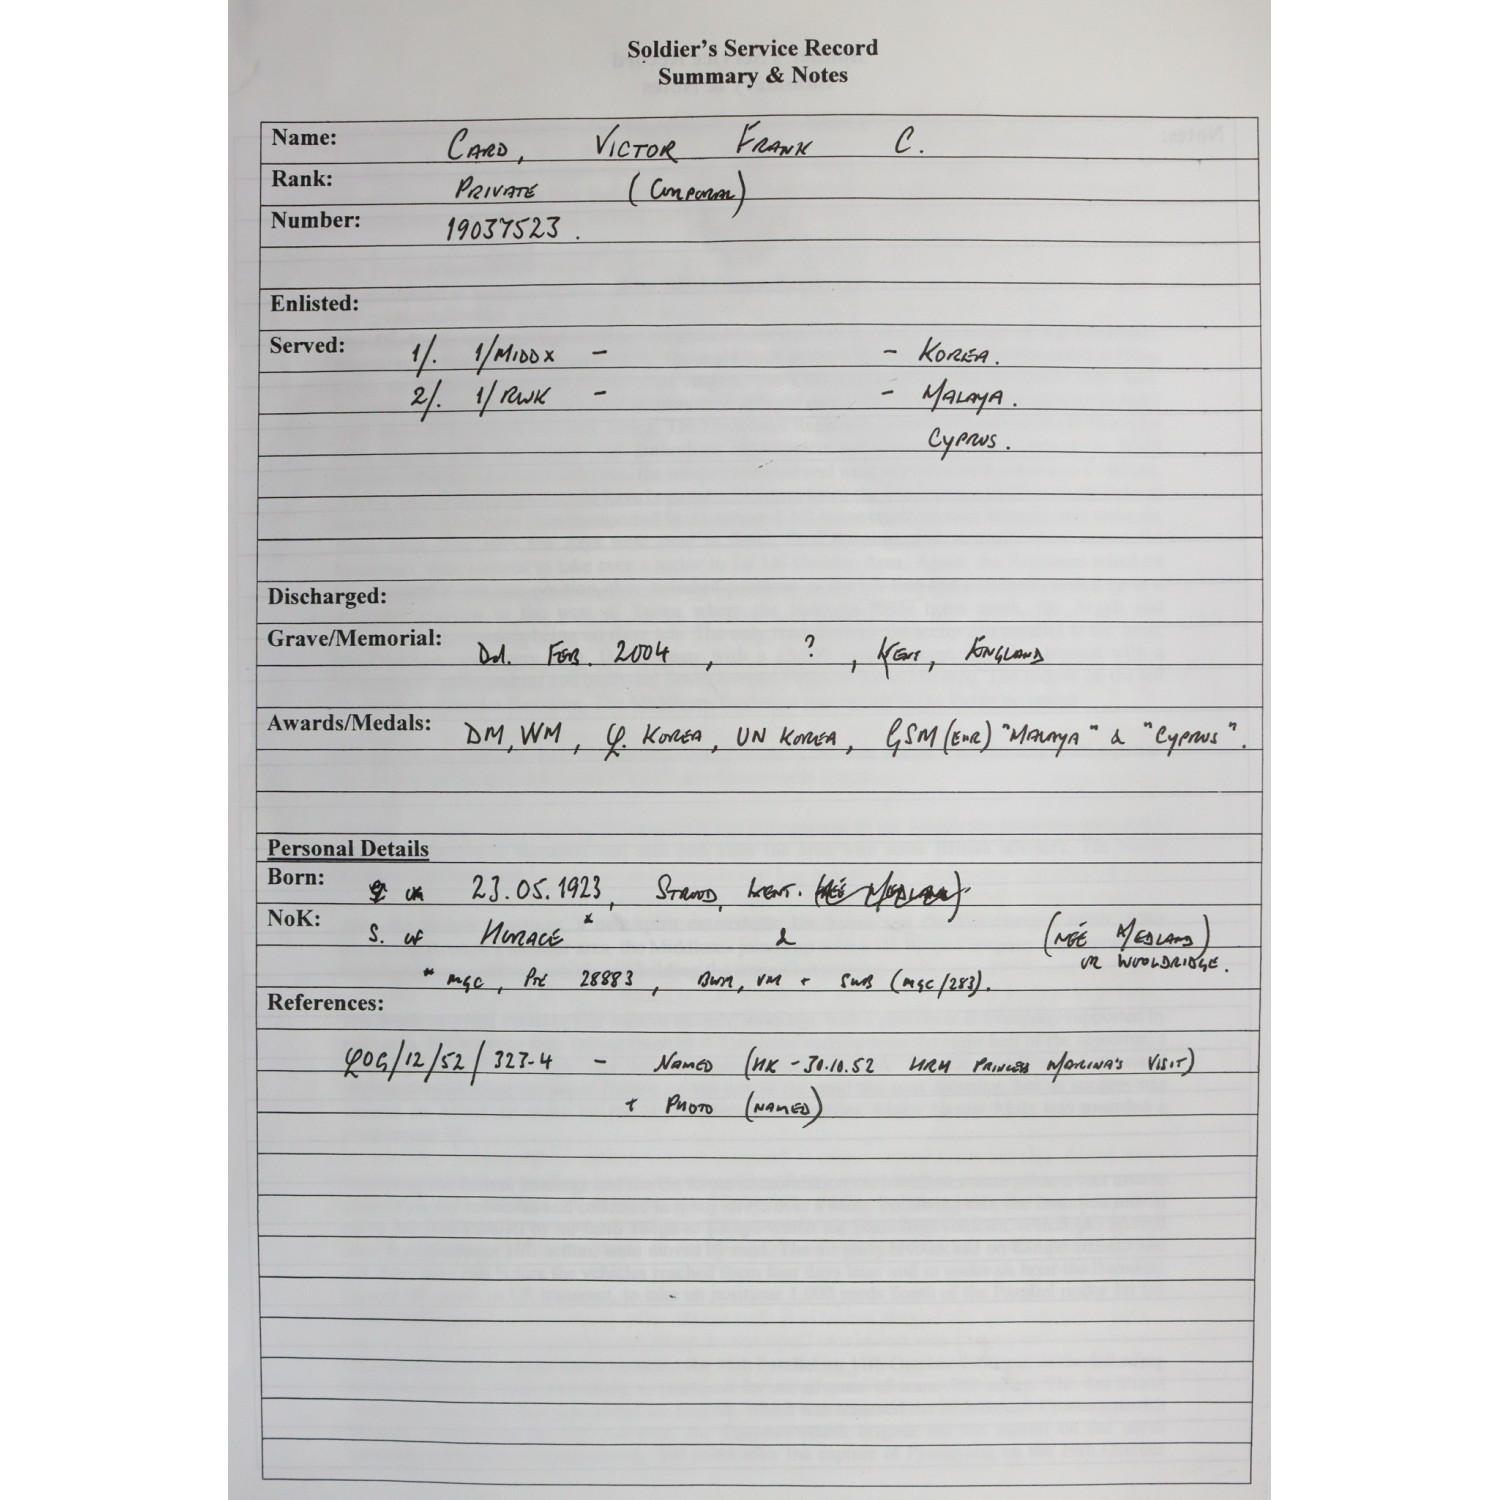 Soldier's Service Record
Summary & Notes
Name: CARD, VICTOR FRANK C.
Rank: PRIVATE (CORPORAL)
Number: 19037523.
Enlisted:
Served: 1/. 1/MIDDX - - KOREA.
2/. 1/RWK - - MALAYA.
CYPRUS.
Discharged:
Grave/Memorial: Dd. FEB. 2004, ?, KENT, ENGLAND
Awards/Medals: DM, WM, Q. KOREA, UN KOREA, GSM (EIIR) "MALAYA" & "CYPRUS".
Personal Details
Born: 23.05.1923, STROOD, KENT. (NÉE MEDLAND).
NoK: S. OF HORACE * & (NÉE MEDLAND)
OR WOOLDRIDGE.
* MGC, Pte 28883, BWM, VM + SWB (MGC/283).
References:
/12/52/323-4 - NAMED (HK - 30.10.52 HRH PRINCESS MARINA'S VISIT)
+ PHOTO (NAMED)